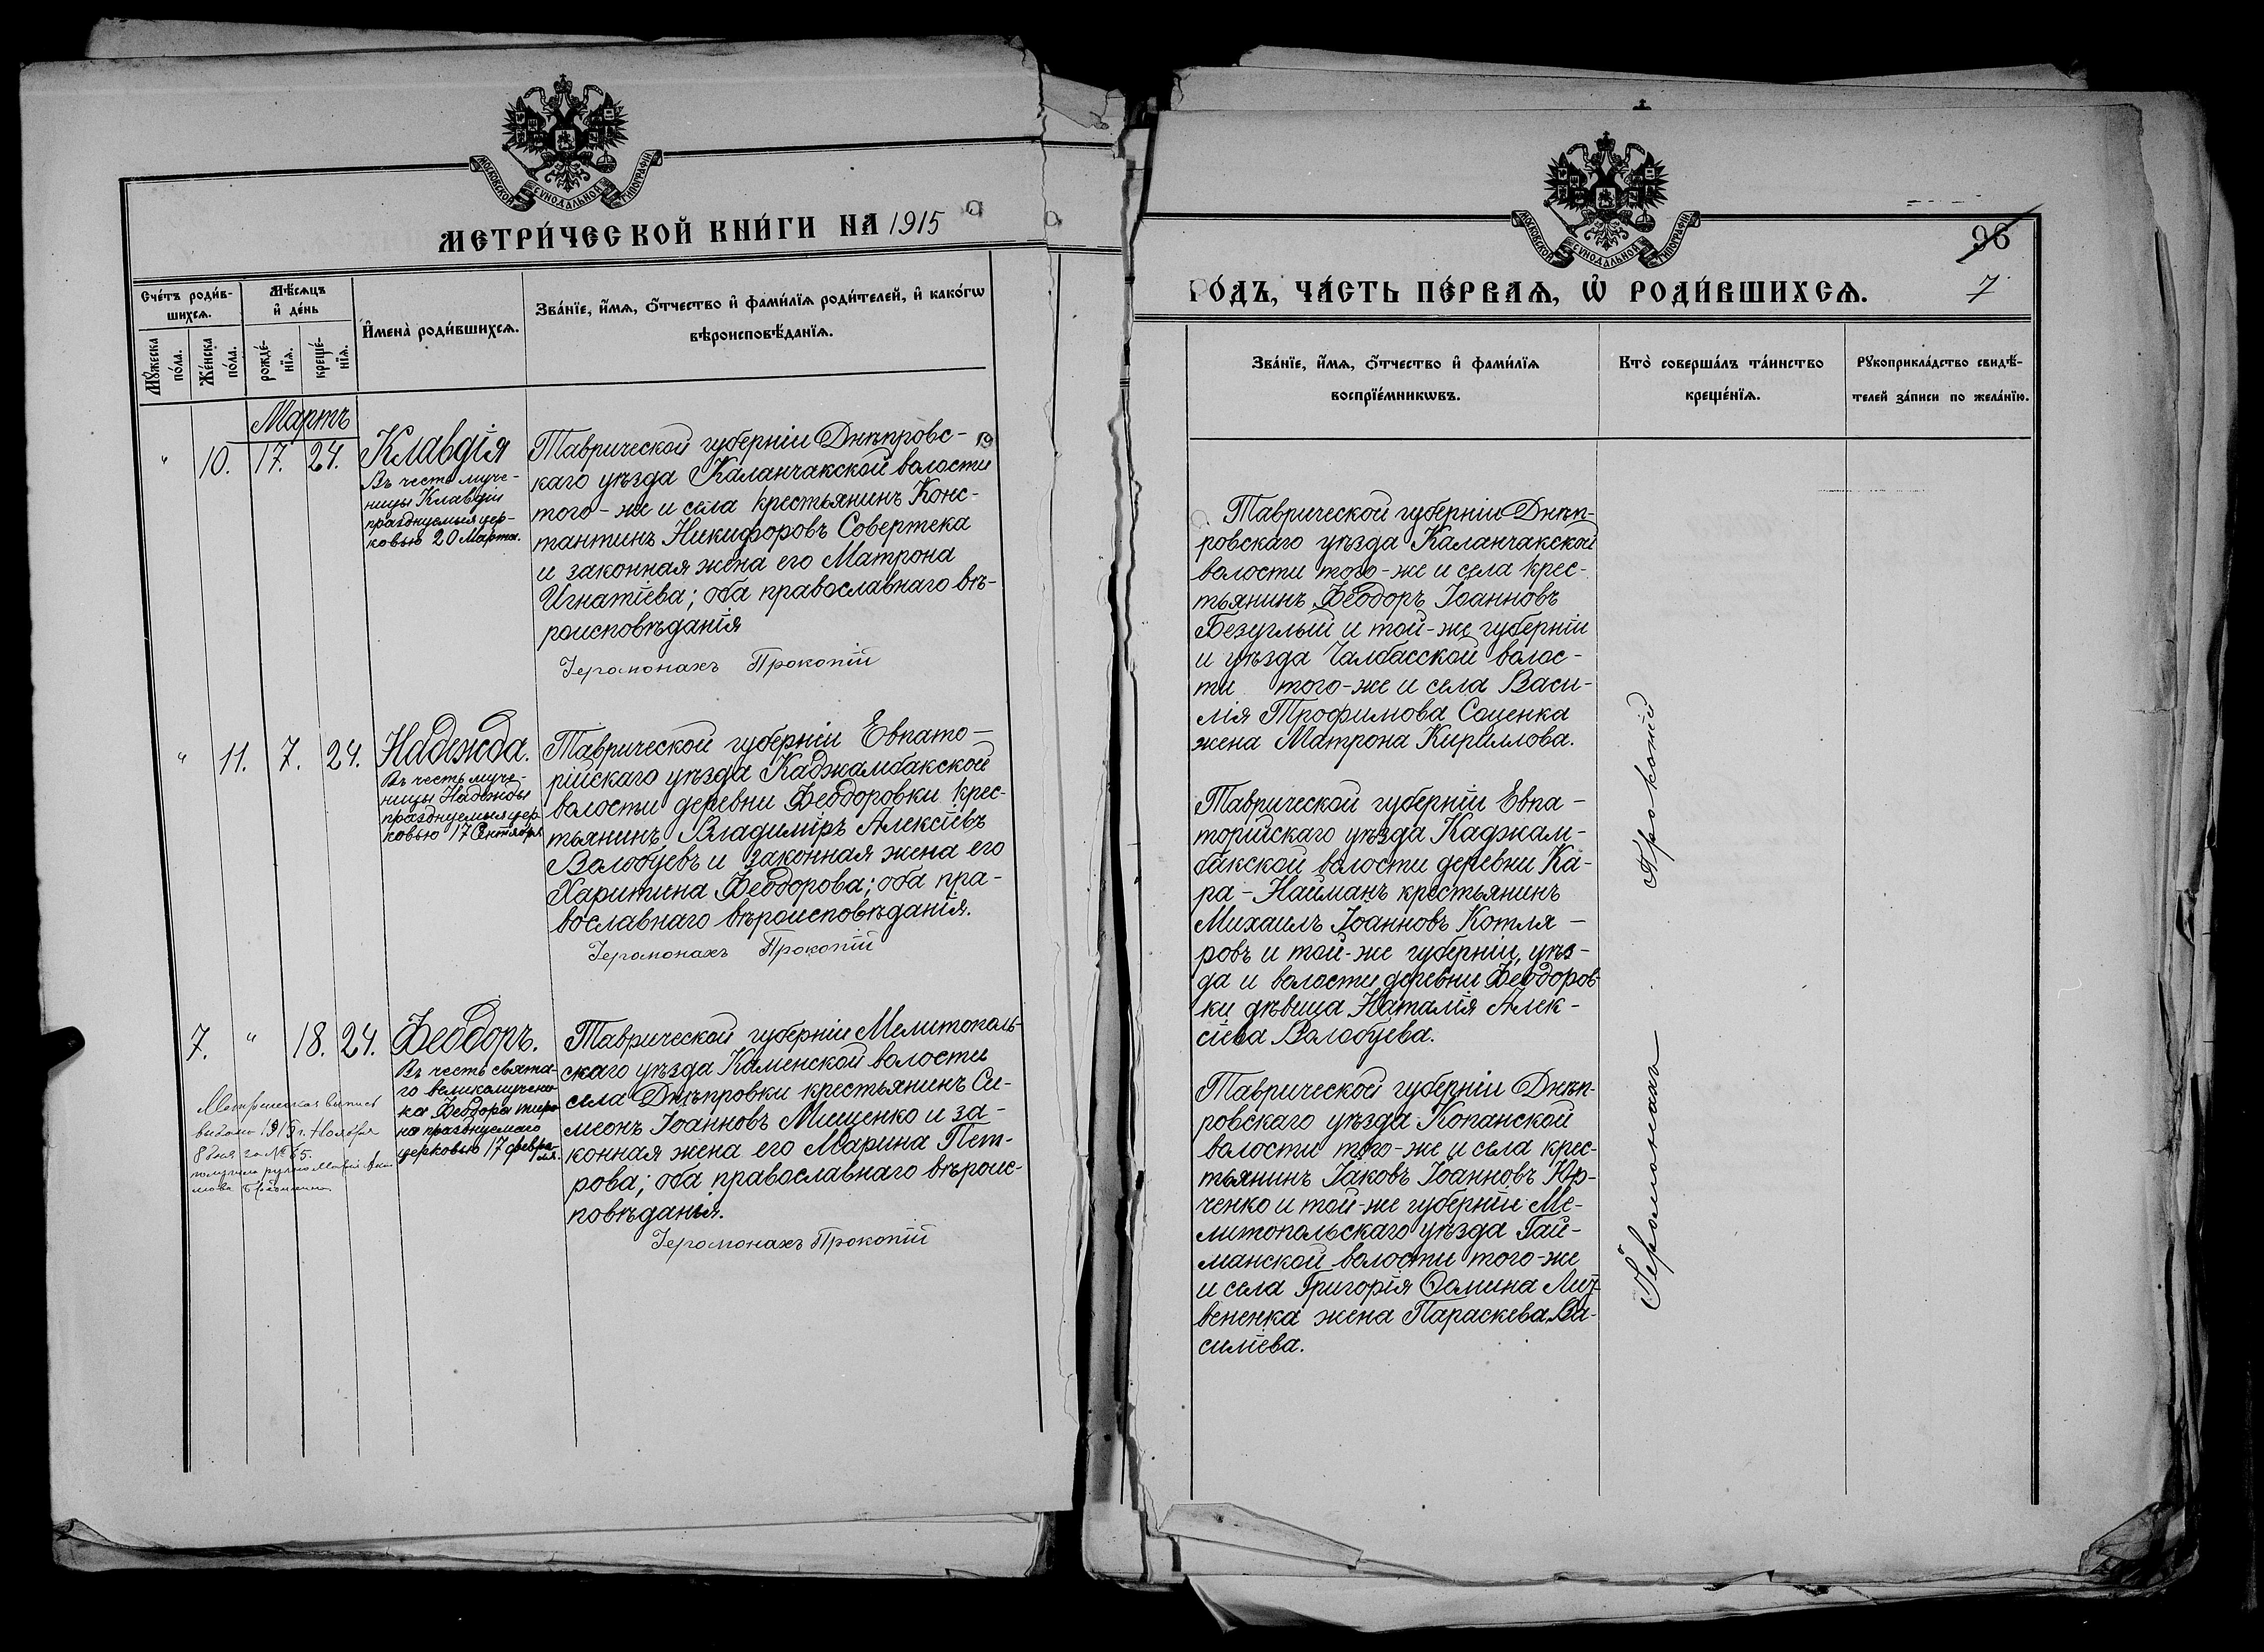 МОСКОВСКОЙ СѴНОДАЛЬНОЙ ТИПОГРАФІИ
МЕТРИ́ЧЕСКОЙ КНИ́ГИ НА 1915
Сче́тъ роди́в-
шихсѧ.
Мꙋ́жеска
по́ла.
Же́нска
по́ла.
Мѣ́сѧцъ
и҆ де́нь
рожде́-
нїѧ.
креще́-
нїѧ.
И҆мена̀ роди́вшихсѧ.
Зва́нїе, и҆́мѧ, ѻ҆́тчество и҆ фами́лїѧ роди́телей, и҆ како́гѡ
вѣроисповѣ́данїѧ.
Мартъ
" 10. 17. 24.
Клавдія
Въ честь муче-
ницы Клавдіи
празднуемыя цер-
ковью 20 Марта.
Таврической губерніи Днѣпровс-
каго уѣзда Каланчакской волости
того-же и села крестьянинъ Конс-
тантинъ Никифоровъ Совертека
и законная жена его Матрона
Игнатіева; оба православнаго вѣ-
роисповѣданія
Іеромонахъ Прокопій
" 11. 7. 24.
Надежда.
Въ честь муче-
ницы Надежды
празднуемыя цер
ковью 17 Сентября
Таврической губерніи Евпато-
рійскаго уѣзда Каджамбакской
волости деревни Феодоровки крес-
тьянинъ Владиміръ Алексіевъ
Волобуевъ и законная жена его
Харитина Феодорова; оба пра-
вославнаго вѣроисповѣданія.
Іеромонахъ Прокопій
7. " 18. 24.
Феодоръ.
Въ честь свята-
го великомучени
ка Феодора тиро
на празднуемаго
церковью 17 февра-
ля.
Метрическая выпись
выдана 1915 г. Ноября
8 дня за № 65.
Таврической губерніи Мелитополь-
скаго уѣзда Каменской волости
села Днѣпровки крестьянинъ Си-
меонъ Іоанновъ Мищенко и за-
конная жена его Марина Пет-
рова; оба православнаго вѣроис-
повѣданія.
Іеромонахъ Прокопій
МОСКОВСКОЙ СѴНОДАЛЬНОЙ ТИПОГРАФІИ
96
7
РО́ДЪ, ЧА́СТЬ ПЕ́РВАѦ, Ѡ҆ РОДИ́ВШИХСѦ.
Зва́нїе, и҆́мѧ, ѻ҆́тчество и҆ фами́лїѧ
воспрїе́мникѡвъ.
Кто̀ соверша́лъ та́инство
креще́нїѧ.
Рꙋкоприкла́дство свидѣ́-
телей за́писи по жела́нїю.
Таврической губерніи Днѣп-
ровскаго уѣзда Каланчакской
волости того-же и села крес-
тьянинъ Феодоръ Іоанновъ
Безуглый и той-же губерніи
и уѣзда Чалбасской волос-
ти того-же и села Васи-
лія Трофимова Соценка
жена Матрона Кириллова.
Таврической губерніи Евпа-
торійскаго уѣзда Каджам-
бакской волости деревни Ка-
ра-Найманъ крестьянинъ
Михаилъ Іоанновъ Котля-
ровъ и той-же губерніи, уѣз-
да и волости деревни Феодоров-
ки дѣвица Наталія Алек-
сіева Волобуева.
Таврической губерніи Днѣп-
ровскаго уѣзда Копанской
волости того-же и села крес-
тьянинъ Іаковъ Іоанновъ Юр-
ченко и той-же губерніи Ме-
литопольскаго уѣзда Гай-
манской волости того-же
и села Григорія Ѳомина Лит-
вененка жена Параскева Ва-
силіева.
Іеромонахъ Прокопій